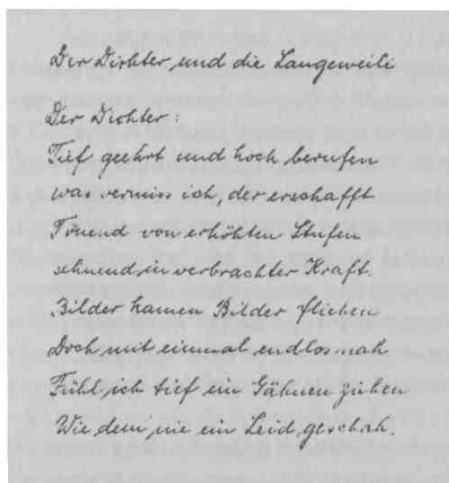 Der Dichter und die Langeweile
Der Dichter:
Tief geehrt und hoch berufen
was vermiss ich, der erschafft
Tönend von erhöhten Stufen
sehnend in verbrachter Kraft.
Bilder kamen Bilder fliehen
Doch mit einmal endlos nah
Fühl ich tief ein Gähnen ziehen
Wie dem nie ein Leid geschah.